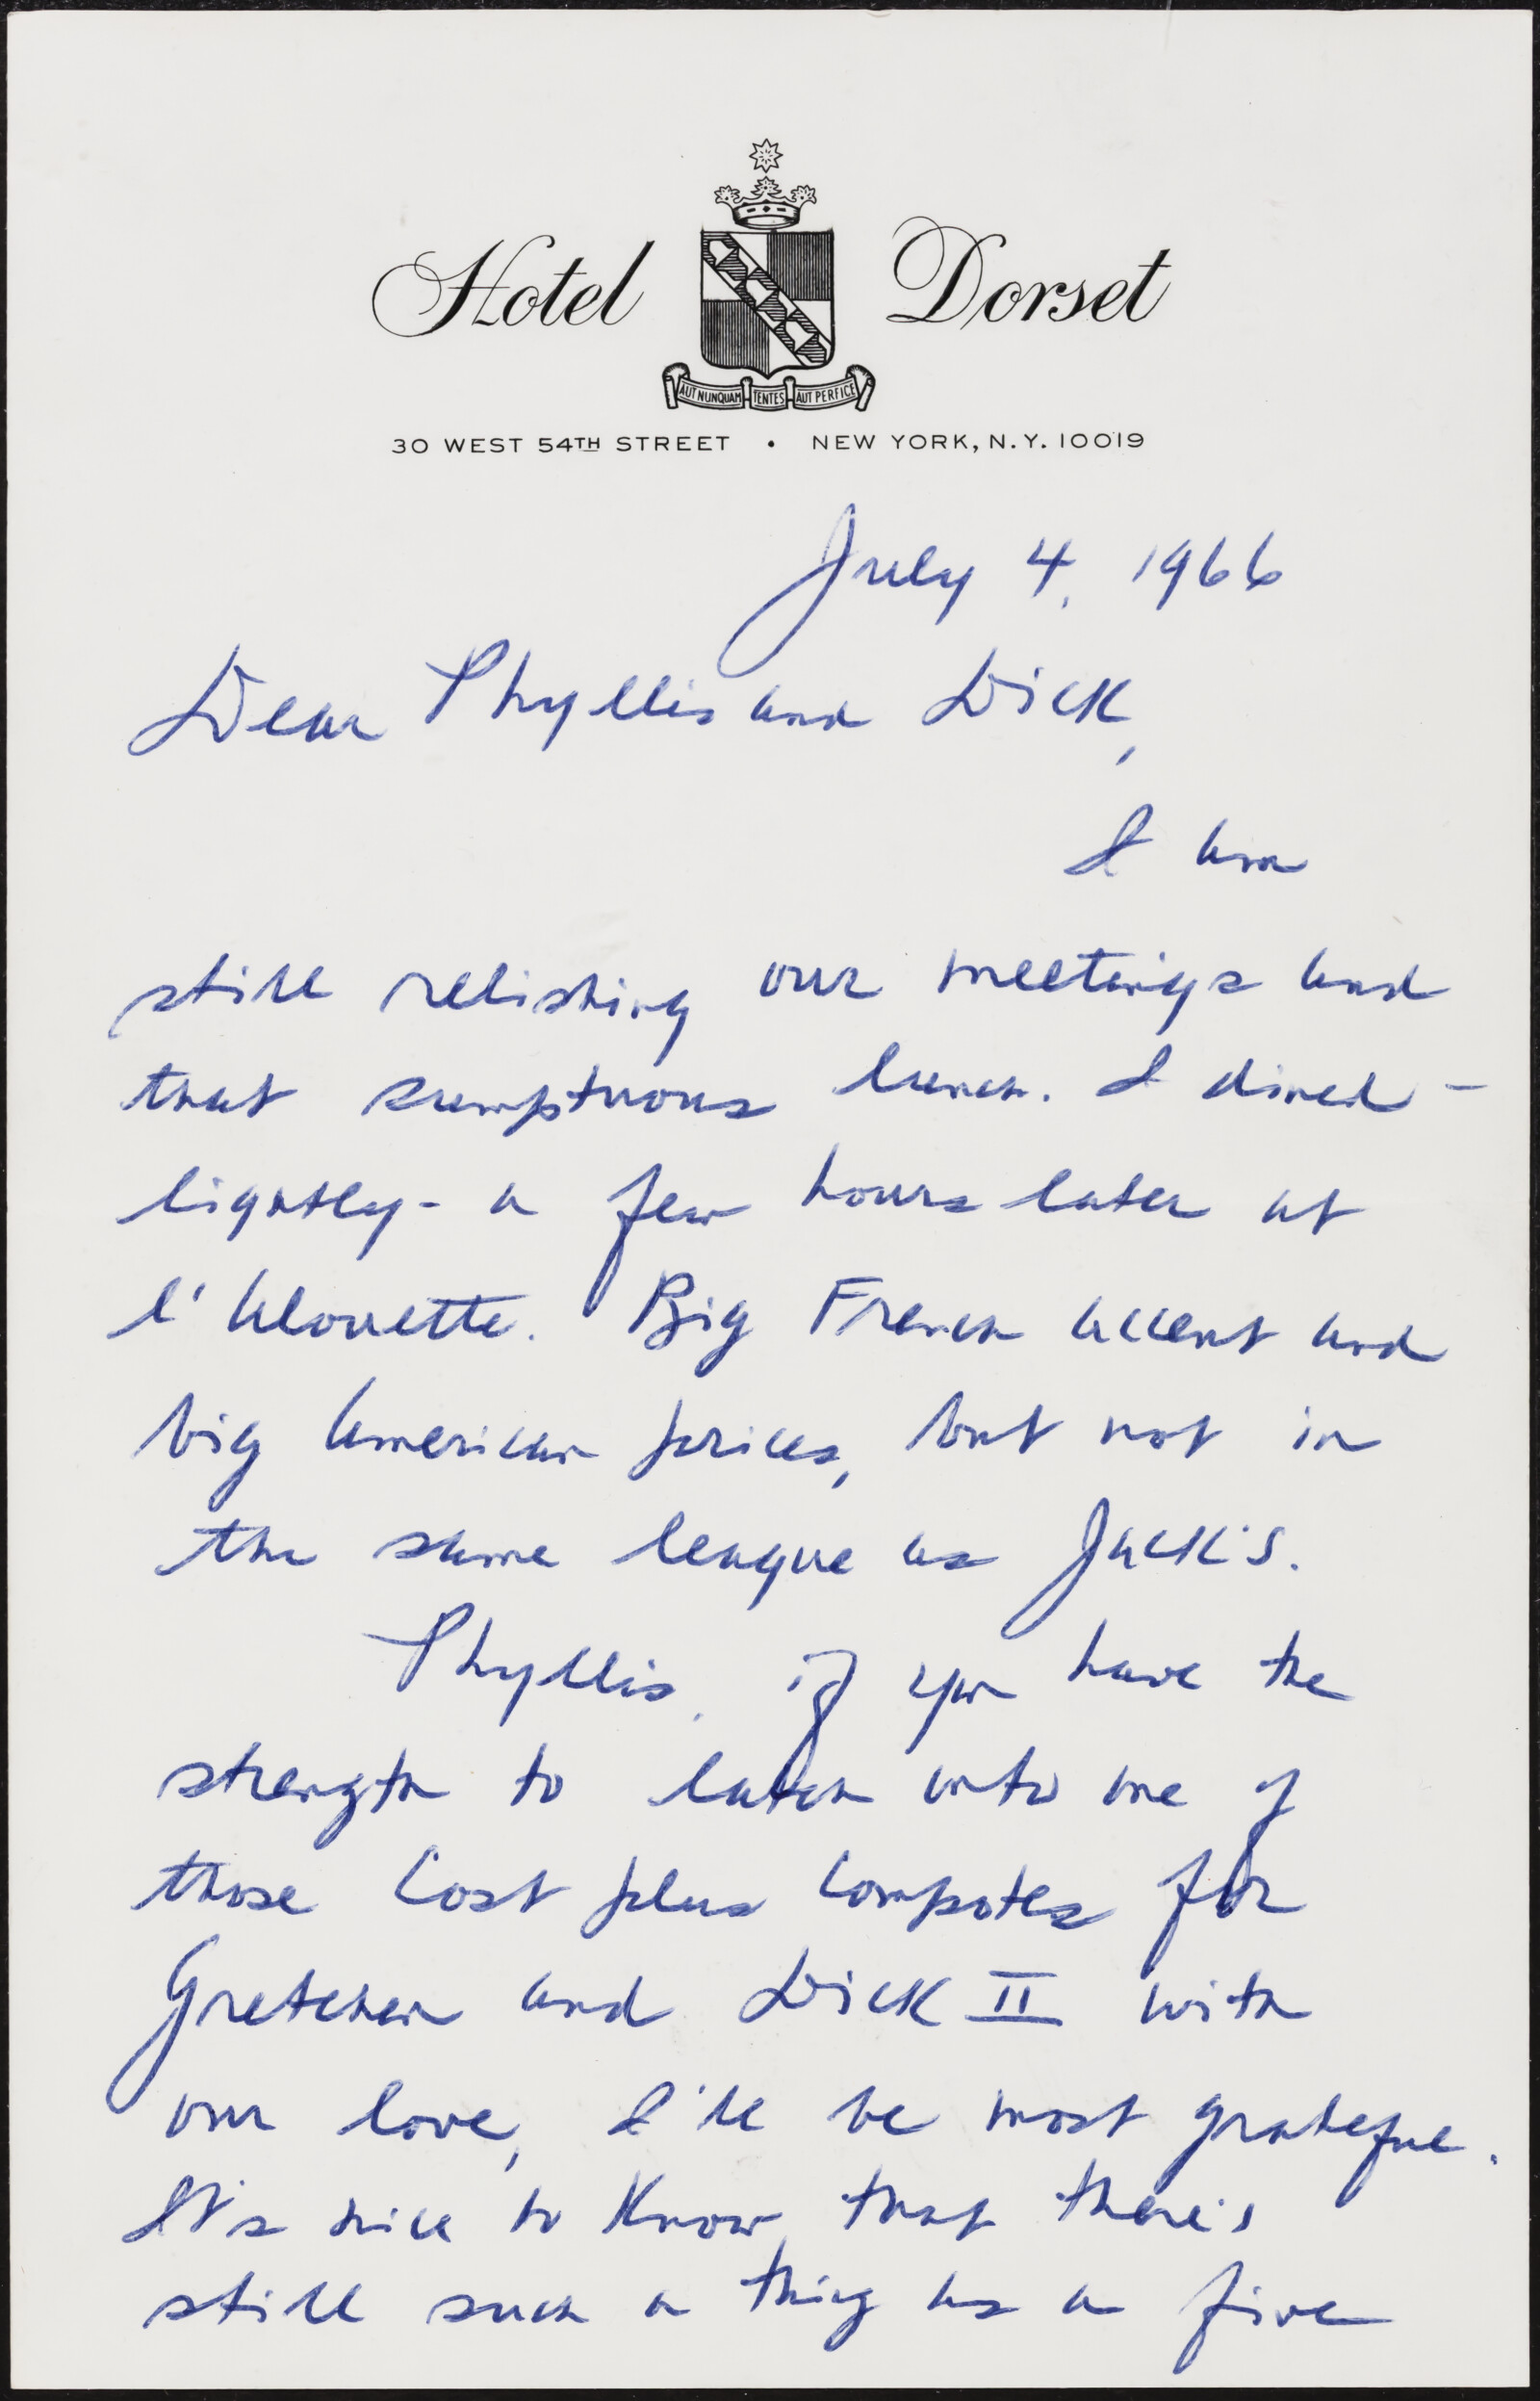 Hotel Dorset
AUT NUNQUAM TENTES AUT PERFICE
30 WEST 54TH STREET • NEW YORK, N.Y. 10019
July 4, 1966
Dear Phyllis and Dick,
I am
still relishing our meetings and
that sumptuous lunch. I dined -
lightly - a few hours later at
l'Alouette. Big French accent and
big American prices, but not in
the same league as Jack's.
Phyllis, if you have the
strength to latch onto one of
those Cost plus compotes for
Gretchen and Dick II with
our love, I'll be most grateful.
It's nice to know that there's
still such a thing as a five